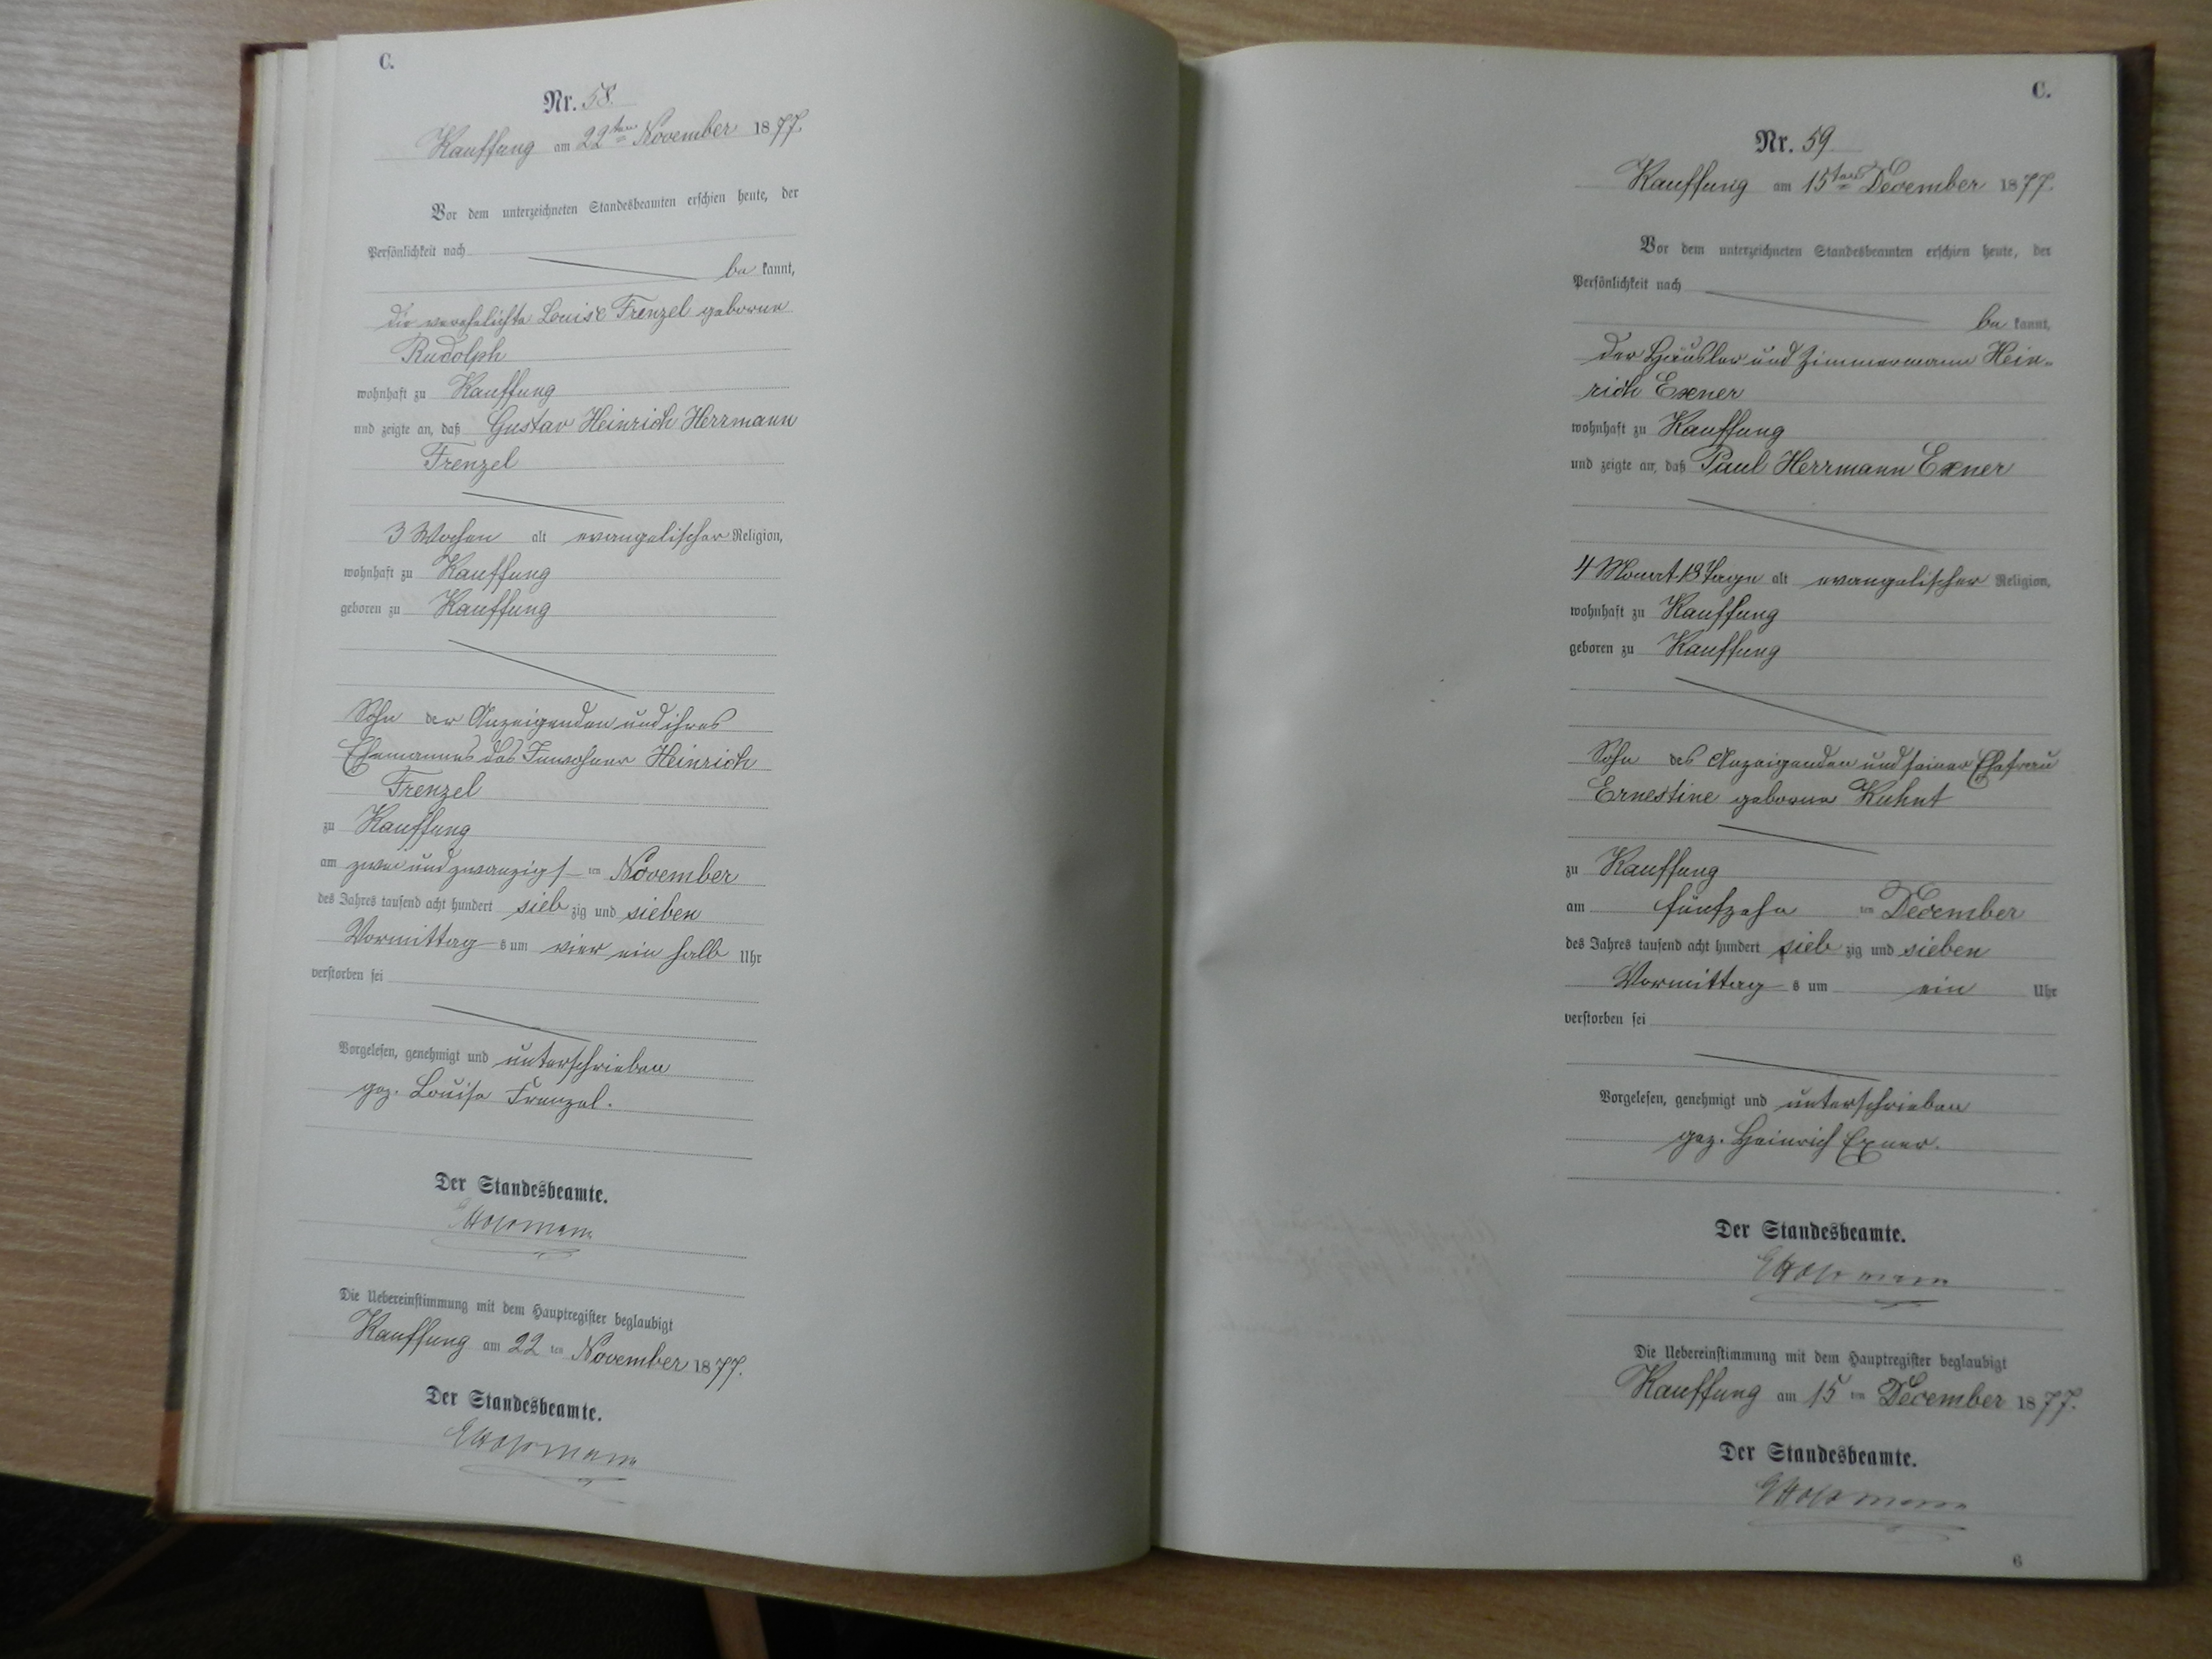 C.
Nr. 58.
Kauffung am 22ten November 1877.
Vor dem unterzeichneten Standesbeamten erschien heute, der
Persönlichkeit nach
be kannt,
die verehelichte Louise Frenzel geborne
Rudolph
wohnhaft zu Kauffung
und zeigte an, daß Gustav Heinrich Herrmann
Frenzel
3 Wochen alt evangelischer Religion,
wohnhaft zu Kauffung
geboren zu Kauffung
Sohn der Anzeigenden und ihres
Ehemannes des Inwohner Heinrich
Frenzel
zu Kauffung
am zwei und zwanzigst ten November
des Jahres tausend acht hundert sieb zig und sieben
Vormittag s um vier ein halb Uhr
verstorben sei
Vorgelesen, genehmigt und unterschrieben
gez. Louise Frenzel.
Der Standesbeamte.
Die Uebereinstimmung mit dem Hauptregister beglaubigt
Kauffung am 22 ten November 1877.
Der Standesbeamte.
C.
Nr. 59
Kauffung am 15ten December 1877.
Vor dem unterzeichneten Standesbeamten erschien heute, der
Persönlichkeit nach
be kannt,
der Häusler und Zimmermann Hein-
rich Exner
wohnhaft zu Kauffung
und zeigte an, daß Paul Herrmann Exner
4 Monat 18 Tage alt evangelischer Religion,
wohnhaft zu Kauffung
geboren zu Kauffung
Sohn des Anzeigenden und seiner Ehefrau
Ernestine geborne Kuhnt
zu Kauffung
am fünfzehn ten December
des Jahres tausend acht hundert sieb zig und sieben
Vormittag s um ein Uhr
verstorben sei
Vorgelesen, genehmigt und unterschrieben
gez. Heinrich Exner.
Der Standesbeamte.
Die Uebereinstimmung mit dem Hauptregister beglaubigt
Kauffung am 15 ten December 1877.
Der Standesbeamte.
6